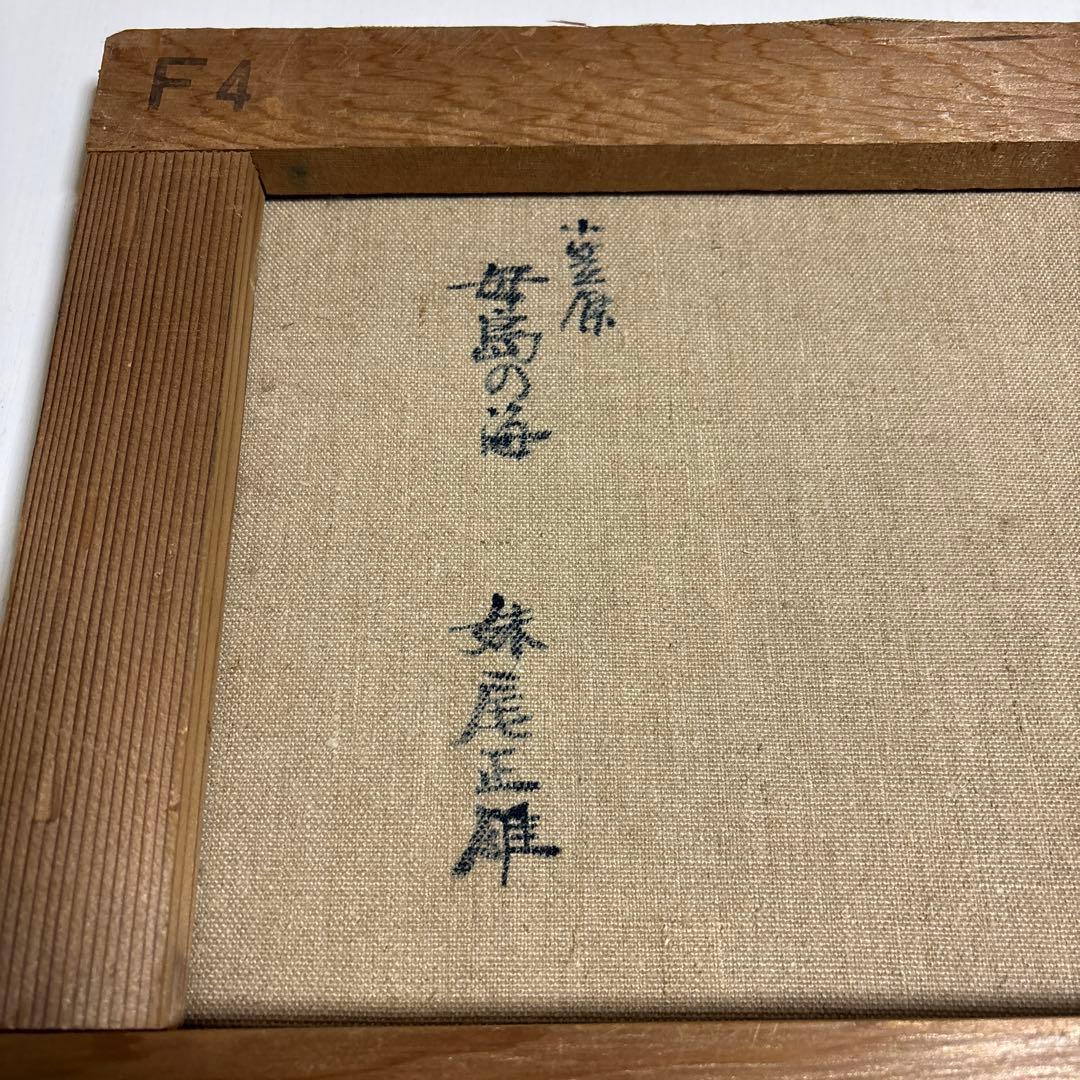 F4
小笠原
母島の海
妹尾正雄